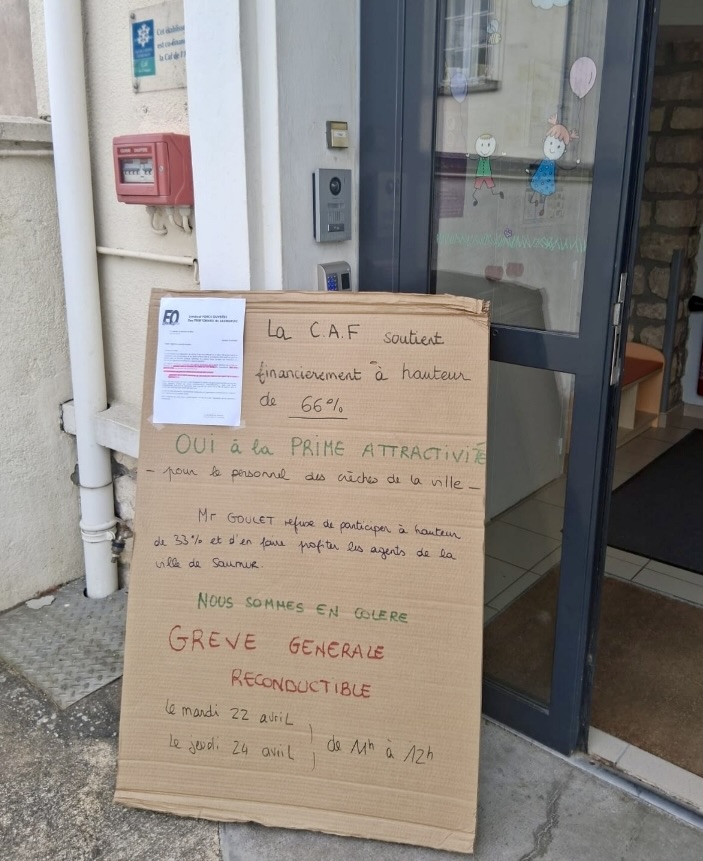 Cet établissement
est co-financé
la Caf de l'
FO
La C.A.F soutient
financierement à hauteur
de 66%
OUI à la PRIME ATTRACTIVITÉ
- pour le personnel des crèches de la ville -
Mr GOULET refuse de participer à hauteur
de 33% et d'en faire profiter les agents de la
ville de Saumur.
NOUS SOMMES EN COLERE
GREVE GENERALE
RECONDUCTIBLE
le mardi 22 avril
le jeudi 24 avril
de 11h à 12h